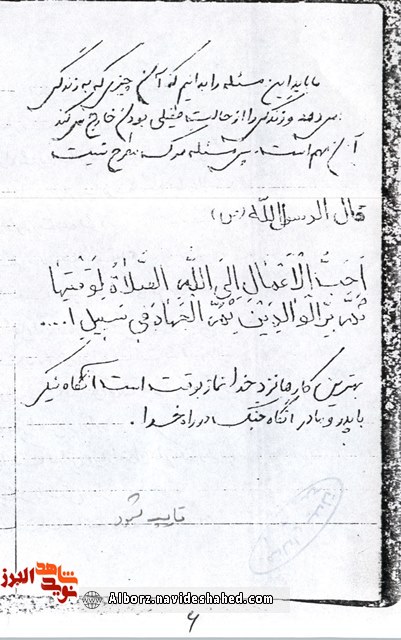 ما باید این مسئله را بدانیم که آن چیزی که به زندگی
می دهد و زندگی را از حالت طفیلی بودن خارج می کند
آن مهم است. پس مسئله مرگ مطرح نیست
قال الرسول الله (ص)
اَحَبُّ الْاَعْمٰالِ اِلَی اللّٰهِ الصَّلاٰةُ لِوَقْتِهٰا
ثُمَّ بِرُّ الْوالِدَیْنِ ثُمَّ الْجِهٰادُ فی سَبیلِ ا....
بهترین کارها نزد خدا نماز بوقت است آنگاه نیکی
با پدر و مادر آنگاه جنگ در راه خدا.
تایپ شود
نوید شاهد البرز
Alborz.navideshahed.com
۶